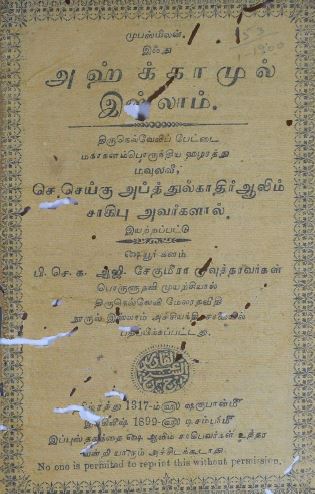 முபஸ்மிலன்.
இஃது
அஹ்க்காமுல்
இஸ்லாம்.
திருநெல்வேலிப் பேட்டை
மகாகனம்பொருந்திய ஹழரத்து
மவுலவீ,
செ. செய்கு அப்த்துல்காதிர் ஆலிம்
சாகிபு அவர்களால்.
இயற்றப்பட்டு
ஷையூர் கனம்
பி. செ. க. ஆஜி. சேகுமீரா றாவுத்தரவர்கள்
பொருளுதவி முயற்சியால்
திருநெல்வேலி மேலரதவீதி
நூருல் இஸ்லாம் அச்சியந்திரசாலையில்
பதிப்பிக்கப்பட்டது.
ஹிஜ்ரத்து 1317-ம்௵ ஷஃபான்மீ
இங்கிலீஷ் 1899-௵ டிசம்பர்மீ
இப்புஸ்தகத்தை ஷை ஆலிம் சாகிபவர்கள் உத்தர
வன்றி யாரும் அச்சிடக்கூடாது.
No one is permitted to reprint this without permission.